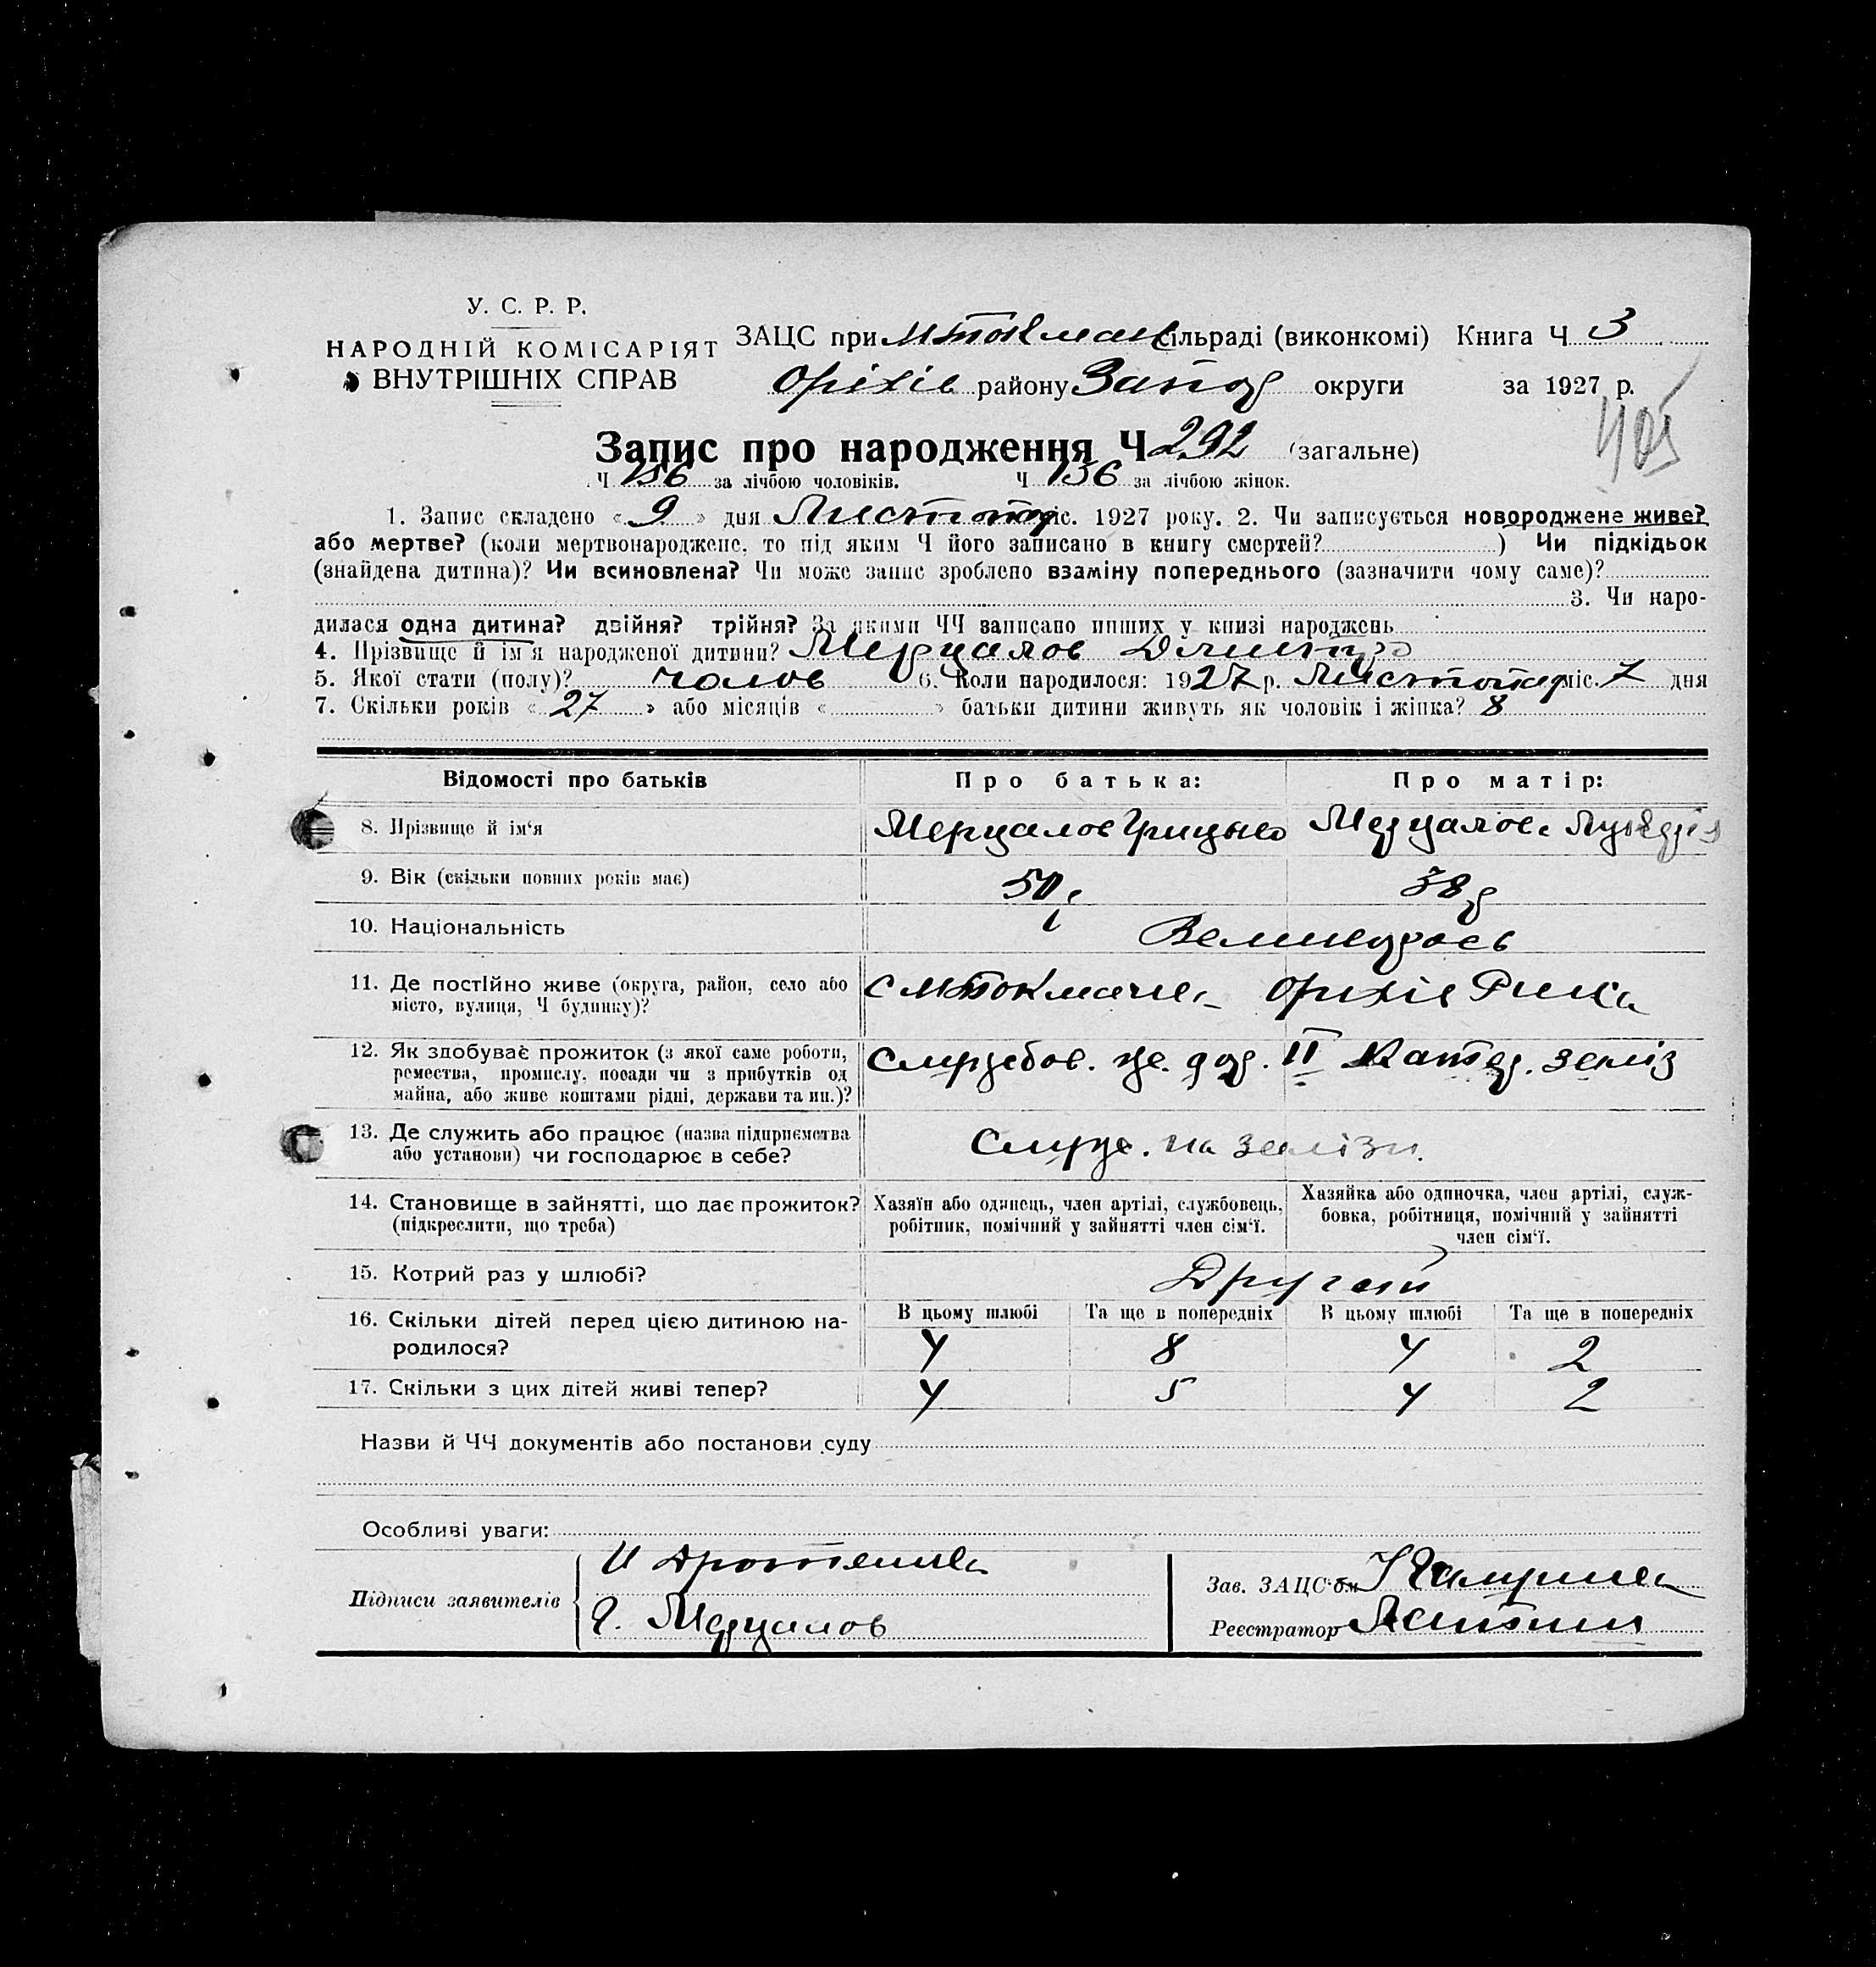 У. С. Р. Р.
НАРОДНІЙ КОМІСАРІЯТ
ВНУТРІШНІХ СПРАВ
ЗАЦС при М Токмак сільраді (виконкомі) Книга Ч 3
Оріхів району Запор округи за 1927 р.
405
Запис про народження Ч 292 (загальне)
Ч 156 за лічбою чоловіків. Ч 136 за лічбою жінок.
1. Запис складено « 9 » дня Листопад міс. 1927 року. 2. Чи записується новороджене живе?
або мертве? (коли мертвонароджене, то під яким Ч його записано в книгу смертей? ) Чи підкідьок
(знайдена дитина)? Чи всиновлена? Чи може запис зроблено взаміну попереднього (зазначити чому саме)?
3. Чи наро-
дилася одна дитина? двійня? трійня? За якими ЧЧ записано инших у книзі народжень
4. Прізвище й ім'я народженої дитини? Мерцалов Дмитро
5. Якої стати (полу)? чолов 6. Коли народилося: 1927 р. Листопад міс. 7 дня
7. Скільки років « 27 » або місяців « » батьки дитини живуть як чоловік і жінка? 8
Відомості про батьків Про батька: Про матір:
8. Прізвище й ім'я Мерцалов Грицько Мерцалова
9. Вік (скільки повних років має) 50 38
10. Національність Великорось
11. Де постійно живе (округа, район, село або
місто, вулиця, Ч будинку)? Оріхів
12. Як здобуває прожиток (з якої саме роботи,
ремества, промислу, посади чи з прибутків од
майна, або живе коштами рідні, держави та ин.)? II заліз
13. Де служить або працює (назва підприємства
або установи) чи господарює в себе? Служ. на залізн.
14. Становище в зайнятті, що дає прожиток?
(підкреслити, що треба)
Хазяїн або одинець, член артілі, службовець,
робітник, помічний у зайнятті член сім'ї.
Хазяйка або одиночка, член артілі, служ-
бовка, робітниця, помічний у зайнятті
член сім'ї.
15. Котрий раз у шлюбі? Другий
16. Скільки дітей перед цією дитиною на-
родилося?
В цьому шлюбі Та ще в попередніх В цьому шлюбі Та ще в попередніх
4 8 4 2
17. Скільки з цих дітей живі тепер? 4 5 4 2
Назви й ЧЧ документів або постанови суду
Особливі уваги:
Підписи заявителів
Г. Мерцалов
Зав. ЗАЦС'ом
Реєстратор